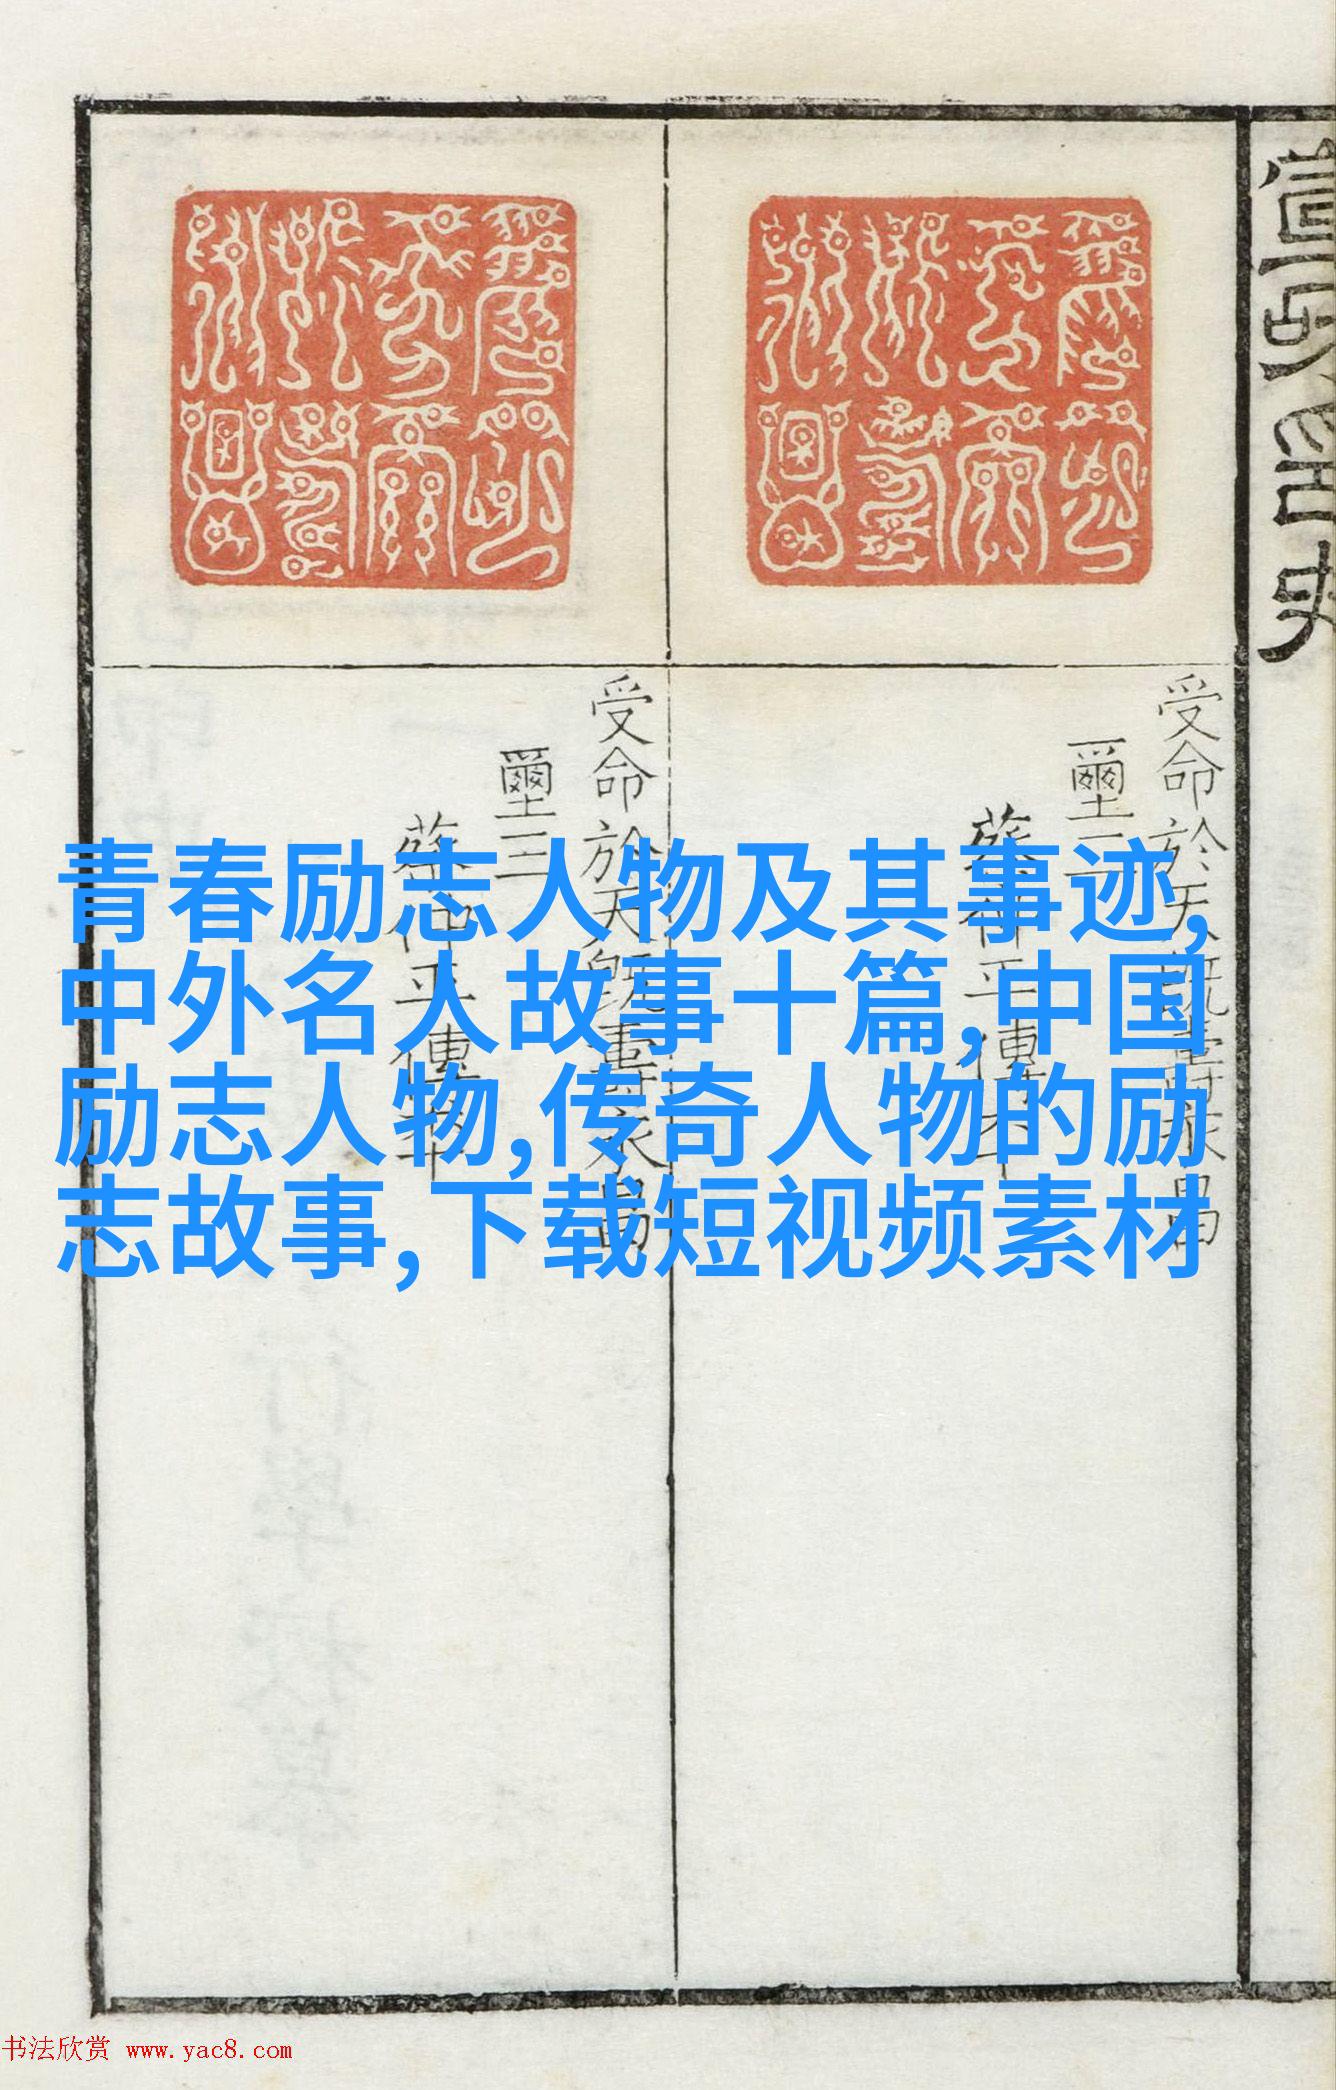 受命於天既壽永昌
璽二
蔡仲平傳本
受命於天既壽永昌
璽三
蔡仲平傳本
青春励志人物及其事迹,
中外名人故事十篇,中国
励志人物,传奇人物的励
志故事,下载短视频素材
书法欣赏 www.yac8.com